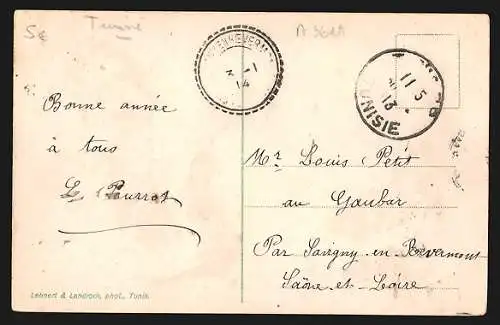 5¢
Tunisie
A 3619
3 -1
14
11 5
13
TUNISIE
Bonne année
à tous
L. Pourrot
Mr Louis Petit
au Gaubar
Par Savigny-en-Revermont
Saône-et-Loire
Lehnert & Landrock, phot., Tunis.